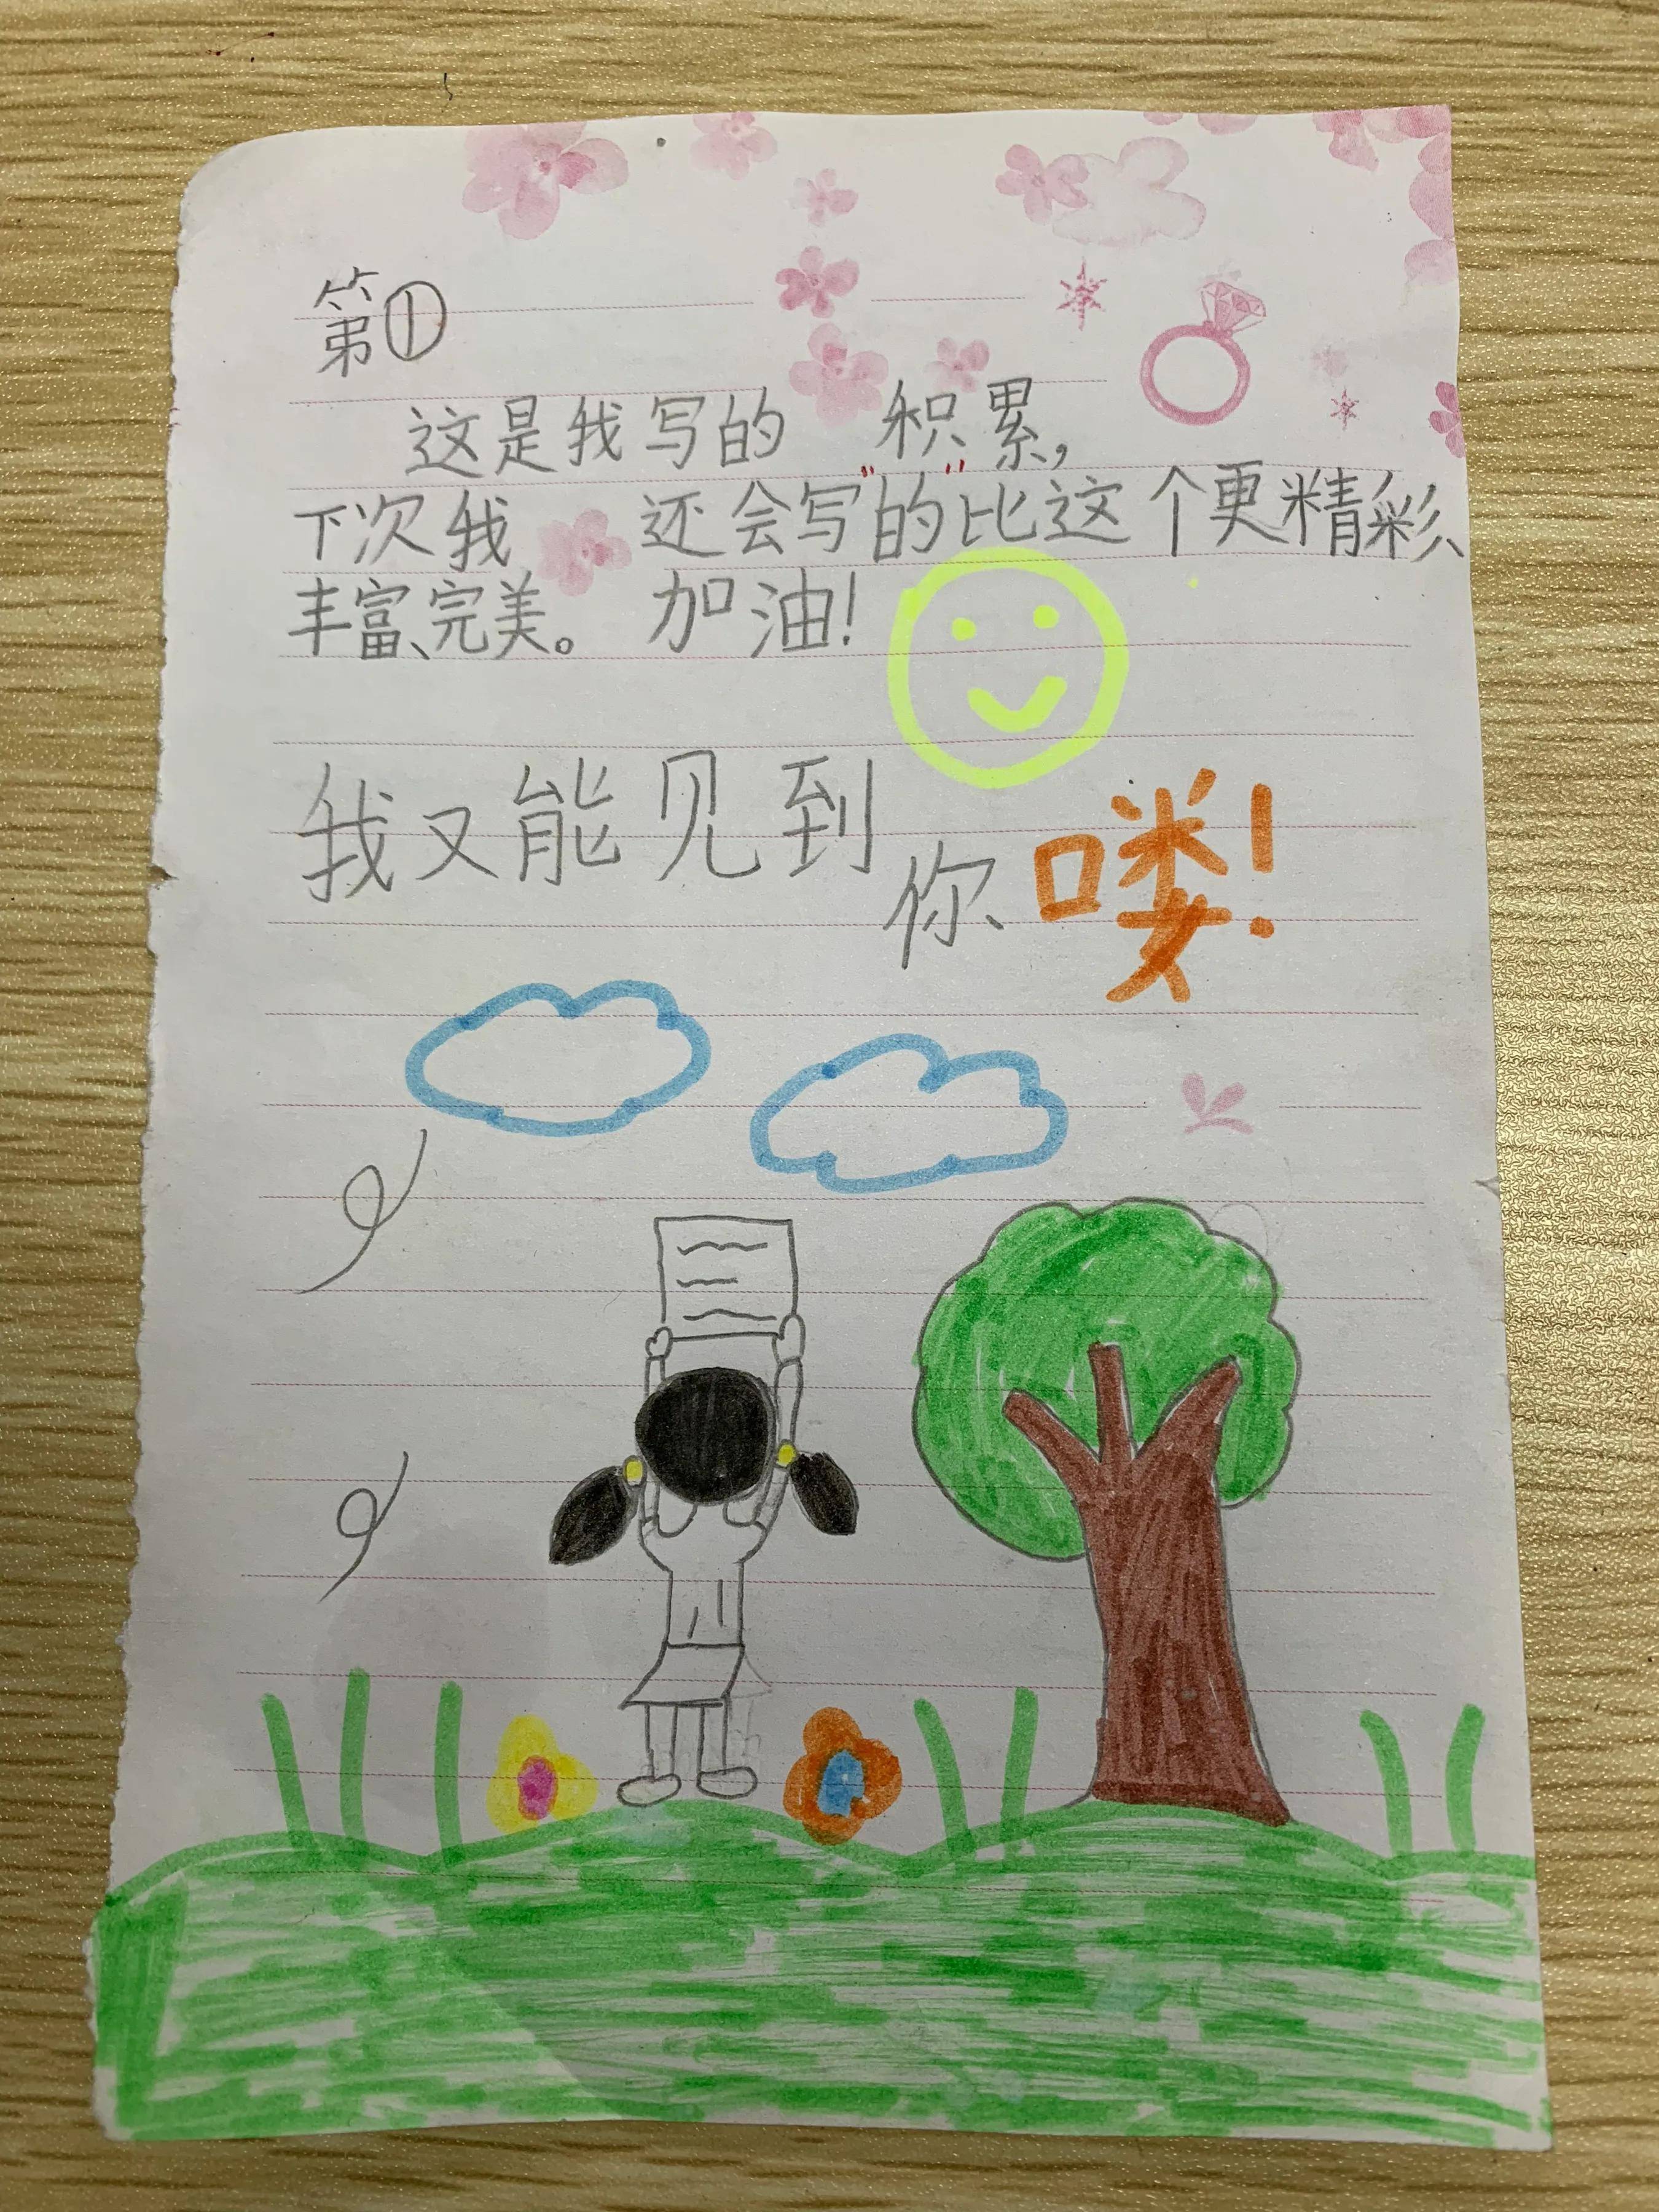 第①
这是我写的 积累，
下次我 还会写"的"比这个更精彩、
丰富、完美。 加油！
我又能见到你喽！